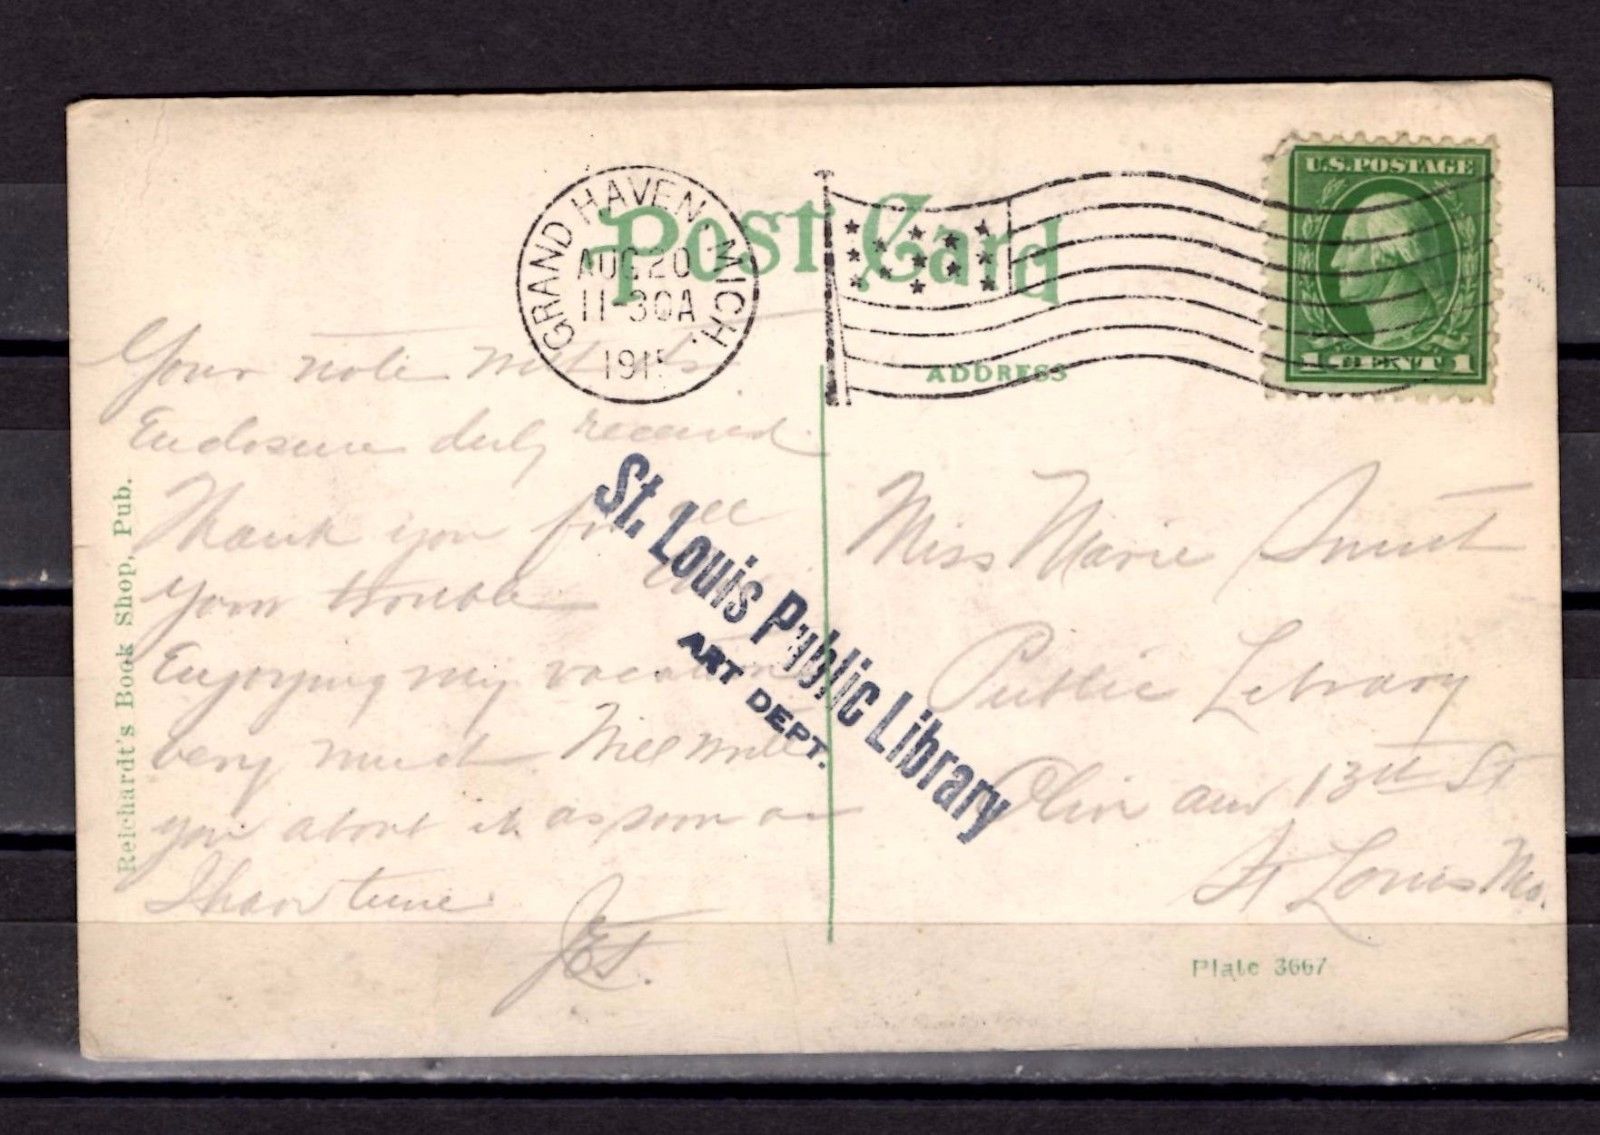 GRAND HAVEN, MICH.
AUG 20
11-30A
1915
Post Card
U.S. POSTAGE
1 CENT 1
ADDRESS
Your note with its
Enclosure duly received
Thank you for all
your trouble
Enjoying my vacation
very much Will write
you about it as soon as
I have time
Reichardt's Book Shop, Pub.
St. Louis Public Library
ART DEPT.
Miss Marie
Public Library
Olive and 13th St
St Louis Mo.
Plate 3667